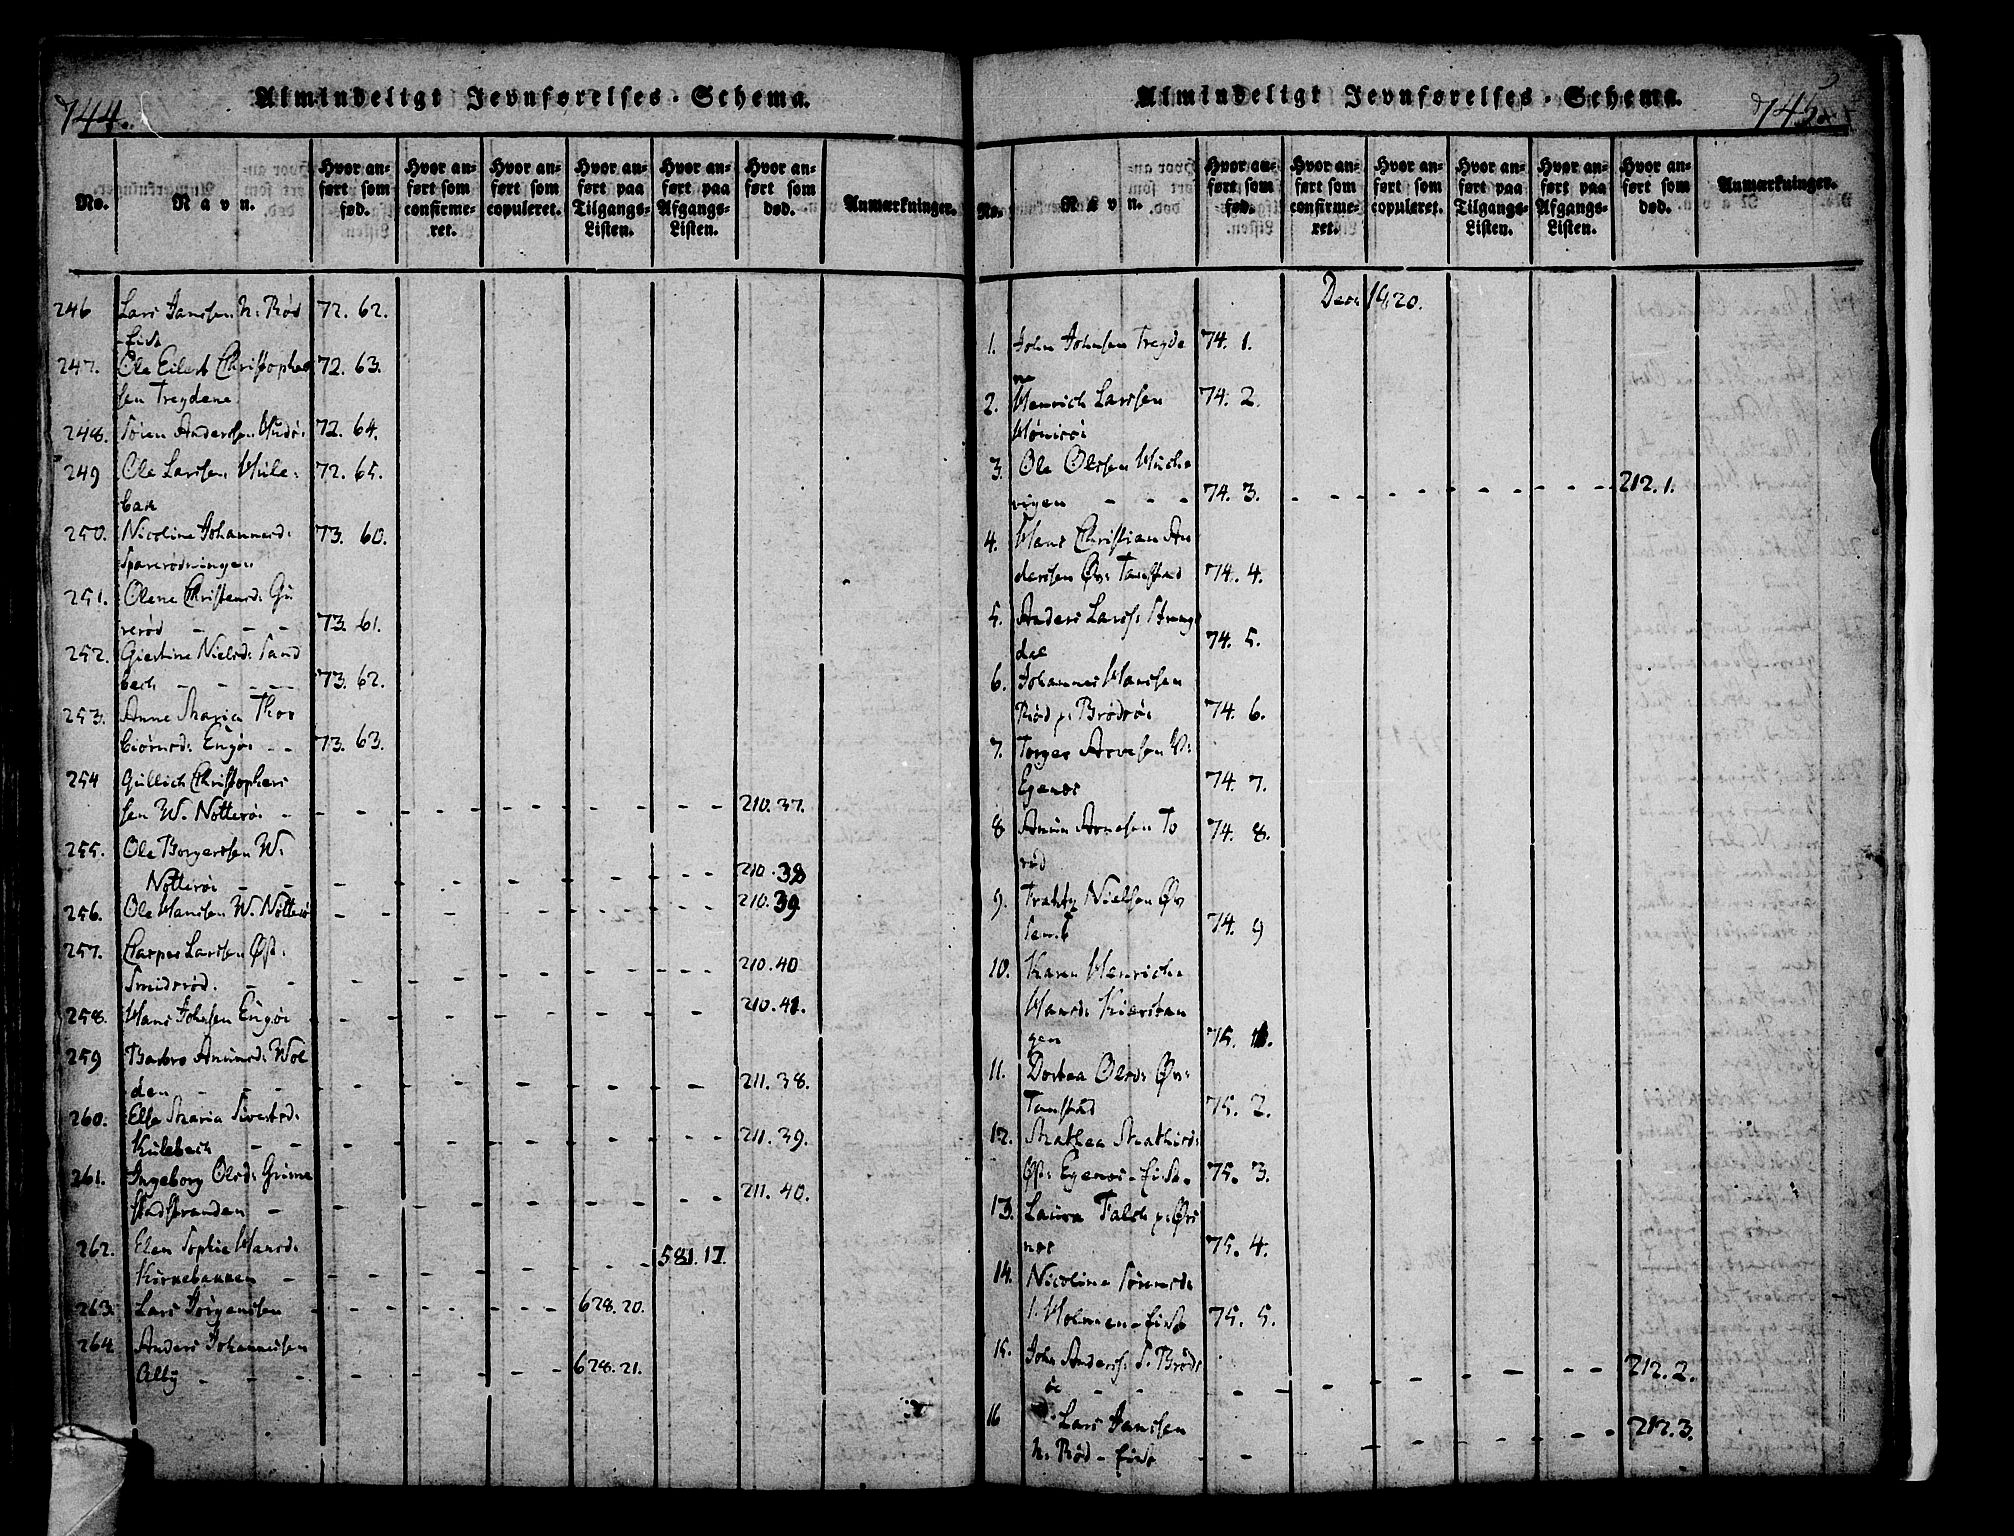 744.
Almindeligt Jevnførelses-Schema.
No.
Navn.
Hvor anført som fød.
Hvor anført som confirmeret.
Hvor anført som copuleret.
Hvor anført paa Tilgangs-Listen.
Hvor anført paa Afgangs-Listen.
Hvor anført som død.
Anmærkninger.
246 Lars Jansen N. Rød 72. 62.
Eie
247. Ole Eilert Christopher 72. 63.
sen Treydene
248. Søren Anderssen Hudø: 72. 64.
249 Ole Larssen Hule: 72. 65.
bak
250. Nicoline Johannesd: 73. 60.
Sparerødningen
251. Olene Christensd: Gu
rerød - - - 73. 61.
252. Giertine Nielsd: Sand
bech - - - - 73. 62.
253. Anne Maria Thor
biørnsd: Engøe - - 73. 63.
254 Gullich Christophers
sen W. Nøtterøe - 210. 37.
255. Ole Borgersen W.
Nøtterøe - - 210. 38
256. Ole Hansen W. Nøtterø 210. 39
257. Casper Larssen Øst:
Smidsrød. - - 210. 40
258. Hans Johnsen Engøe 210. 41.
259 Barbro Amunsd: Wol
den - - 211. 38.
260. Else Maria Sivertsd:
Kulebech - - 211. 39.
261. Ingeborg Olsd: Grime
stadstranden - 211. 40.
262. Elen Sophie Hansd:
Kirnebakken - 581. 17.
263. Lars Jørgensen 628. 20.
264 Anders Johannesen
Alby - - 628. 21.
745
Almindeligt Jevnførelses-Schema.
No.
Navn.
Hvor anført som fød.
Hvor anført som confirmeret.
Hvor anført som copuleret.
Hvor anført paa Tilgangs-Listen.
Hvor anført paa Afgangs-Listen.
Hvor anført som død.
Anmærkninger.
1820.
1. John Johnsen Treyde 74. 1.
ne
2. Henrich Larssen 74. 2.
3. Ole Olssen Buch
vigen - - - 74. 3. 212. 1.
4. Hans Christian An
derssen Øv: Tanstad 74. 4.
5. Anders Larss: Strengs
dal 74. 5.
6. Johannes Hanssen
Rød p. Brødsøe 74. 6.
7. Torger Arvesen W:
Egenes 74. 7.
8 Amun Arnesen To 74. 8.
rød
9. Nielsen Øv
Sem 74. 9
10. Karen Henriche
Hansd: Kiærstan
gen 75. 1.
11. Dortea Olsd: Øv:
Tanstad 75. 2.
12. Mathea Mathisd:
Øst: Egenes - Eie. 75. 3.
13. Laura Falch p. Ørs
nes 75. 4.
14. Nicoline Sørensd:
Holmen - Eie 75. 5.
15. John Anderss: S. Brøds
øe - - 212. 2.
16 Lars Jansen 212. 3.
N. Rød - Eie -